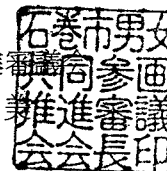 石巻市男女
共同参画
推進審議
会会長印